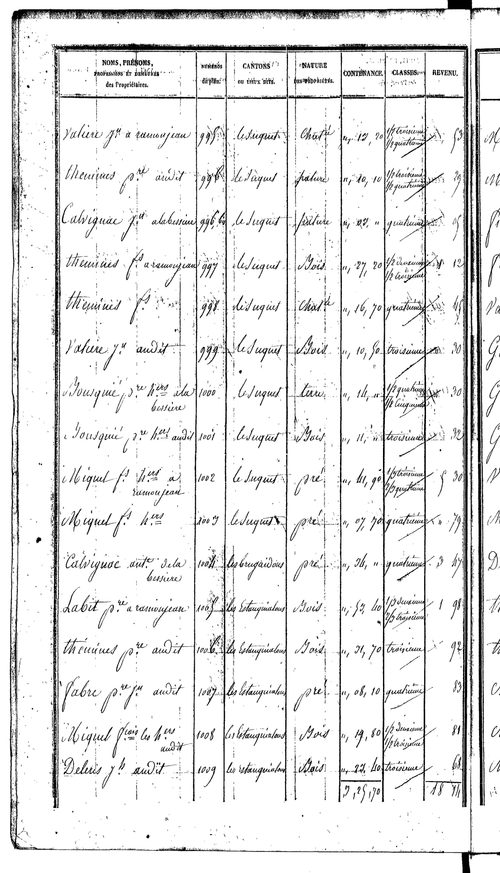 NOMS, PRÉNOMS, PROFESSIONS ET DEMEURES des Propriétaires. NUMÉROS du plan. CANTONS OU LIEUX DITS. NATURE DES PROPRIÉTÉS. CONTENANCE. CLASSES. REVENU.
Valiere jn a ramonjean 995 le Suquet Chatre ", 12, 20 1/2 troisième 1/2 quatrième 53
themines pre audit 996 le Suquet pature ", 10, 10 1/2 troisième 1/2 quatrième 29
Calvignac jn alabessiere 996 bis le Suquet pature ", 02, " quatrieme 05
themines fs a ramonjean 997 le Suquet Bois ", 27, 20 1/2 deuxieme 1/2 troisieme 12
themines fs 998 le Suquet Chatre ", 16, 70 quatrieme 45
Valiere jn audit 999 le Suquet Bois ", 10, 50 troisieme 30
Bousquié pre hers a la bessière 1000 le Suquet terre ", 14, " 1/2 quatrieme 1/2 cinquieme 30
Bousquié pre hers audit 1001 le Suquet Bois ", 11, " troisieme 32
Miquel fs hers a ramonjean 1002 le Suquet pré ", 41, 90 1/3 troisieme 2/3 quatrieme 5 30
Miquel fs hers 1003 le Suquet pré ", 07, 70 quatrieme " 79
Calvignac ante dela bessiere 1004 les brugaidous pré ", 34, " quatrieme 3 47
Labit pre a ramonjean 1005 les Estanquialous Bois ", 52, 40 1/3 deuxieme 2/3 troisieme 1 98
themines pre audit 1006 les Estanquialous Bois ", 31, 70 troisieme 92
fabre pre jn audit 1007 les Estanquialous pré ", 08, 10 quatrième 83
Miquel fcois les hers audit 1008 les Estanquialous Bois ", 19, 80 1/2 deuxieme 1/2 troisieme 81
Deleris jh audit 1009 les Estanquialous Bois ", 23, 40 troisieme 68
3, 25, 70 18 74